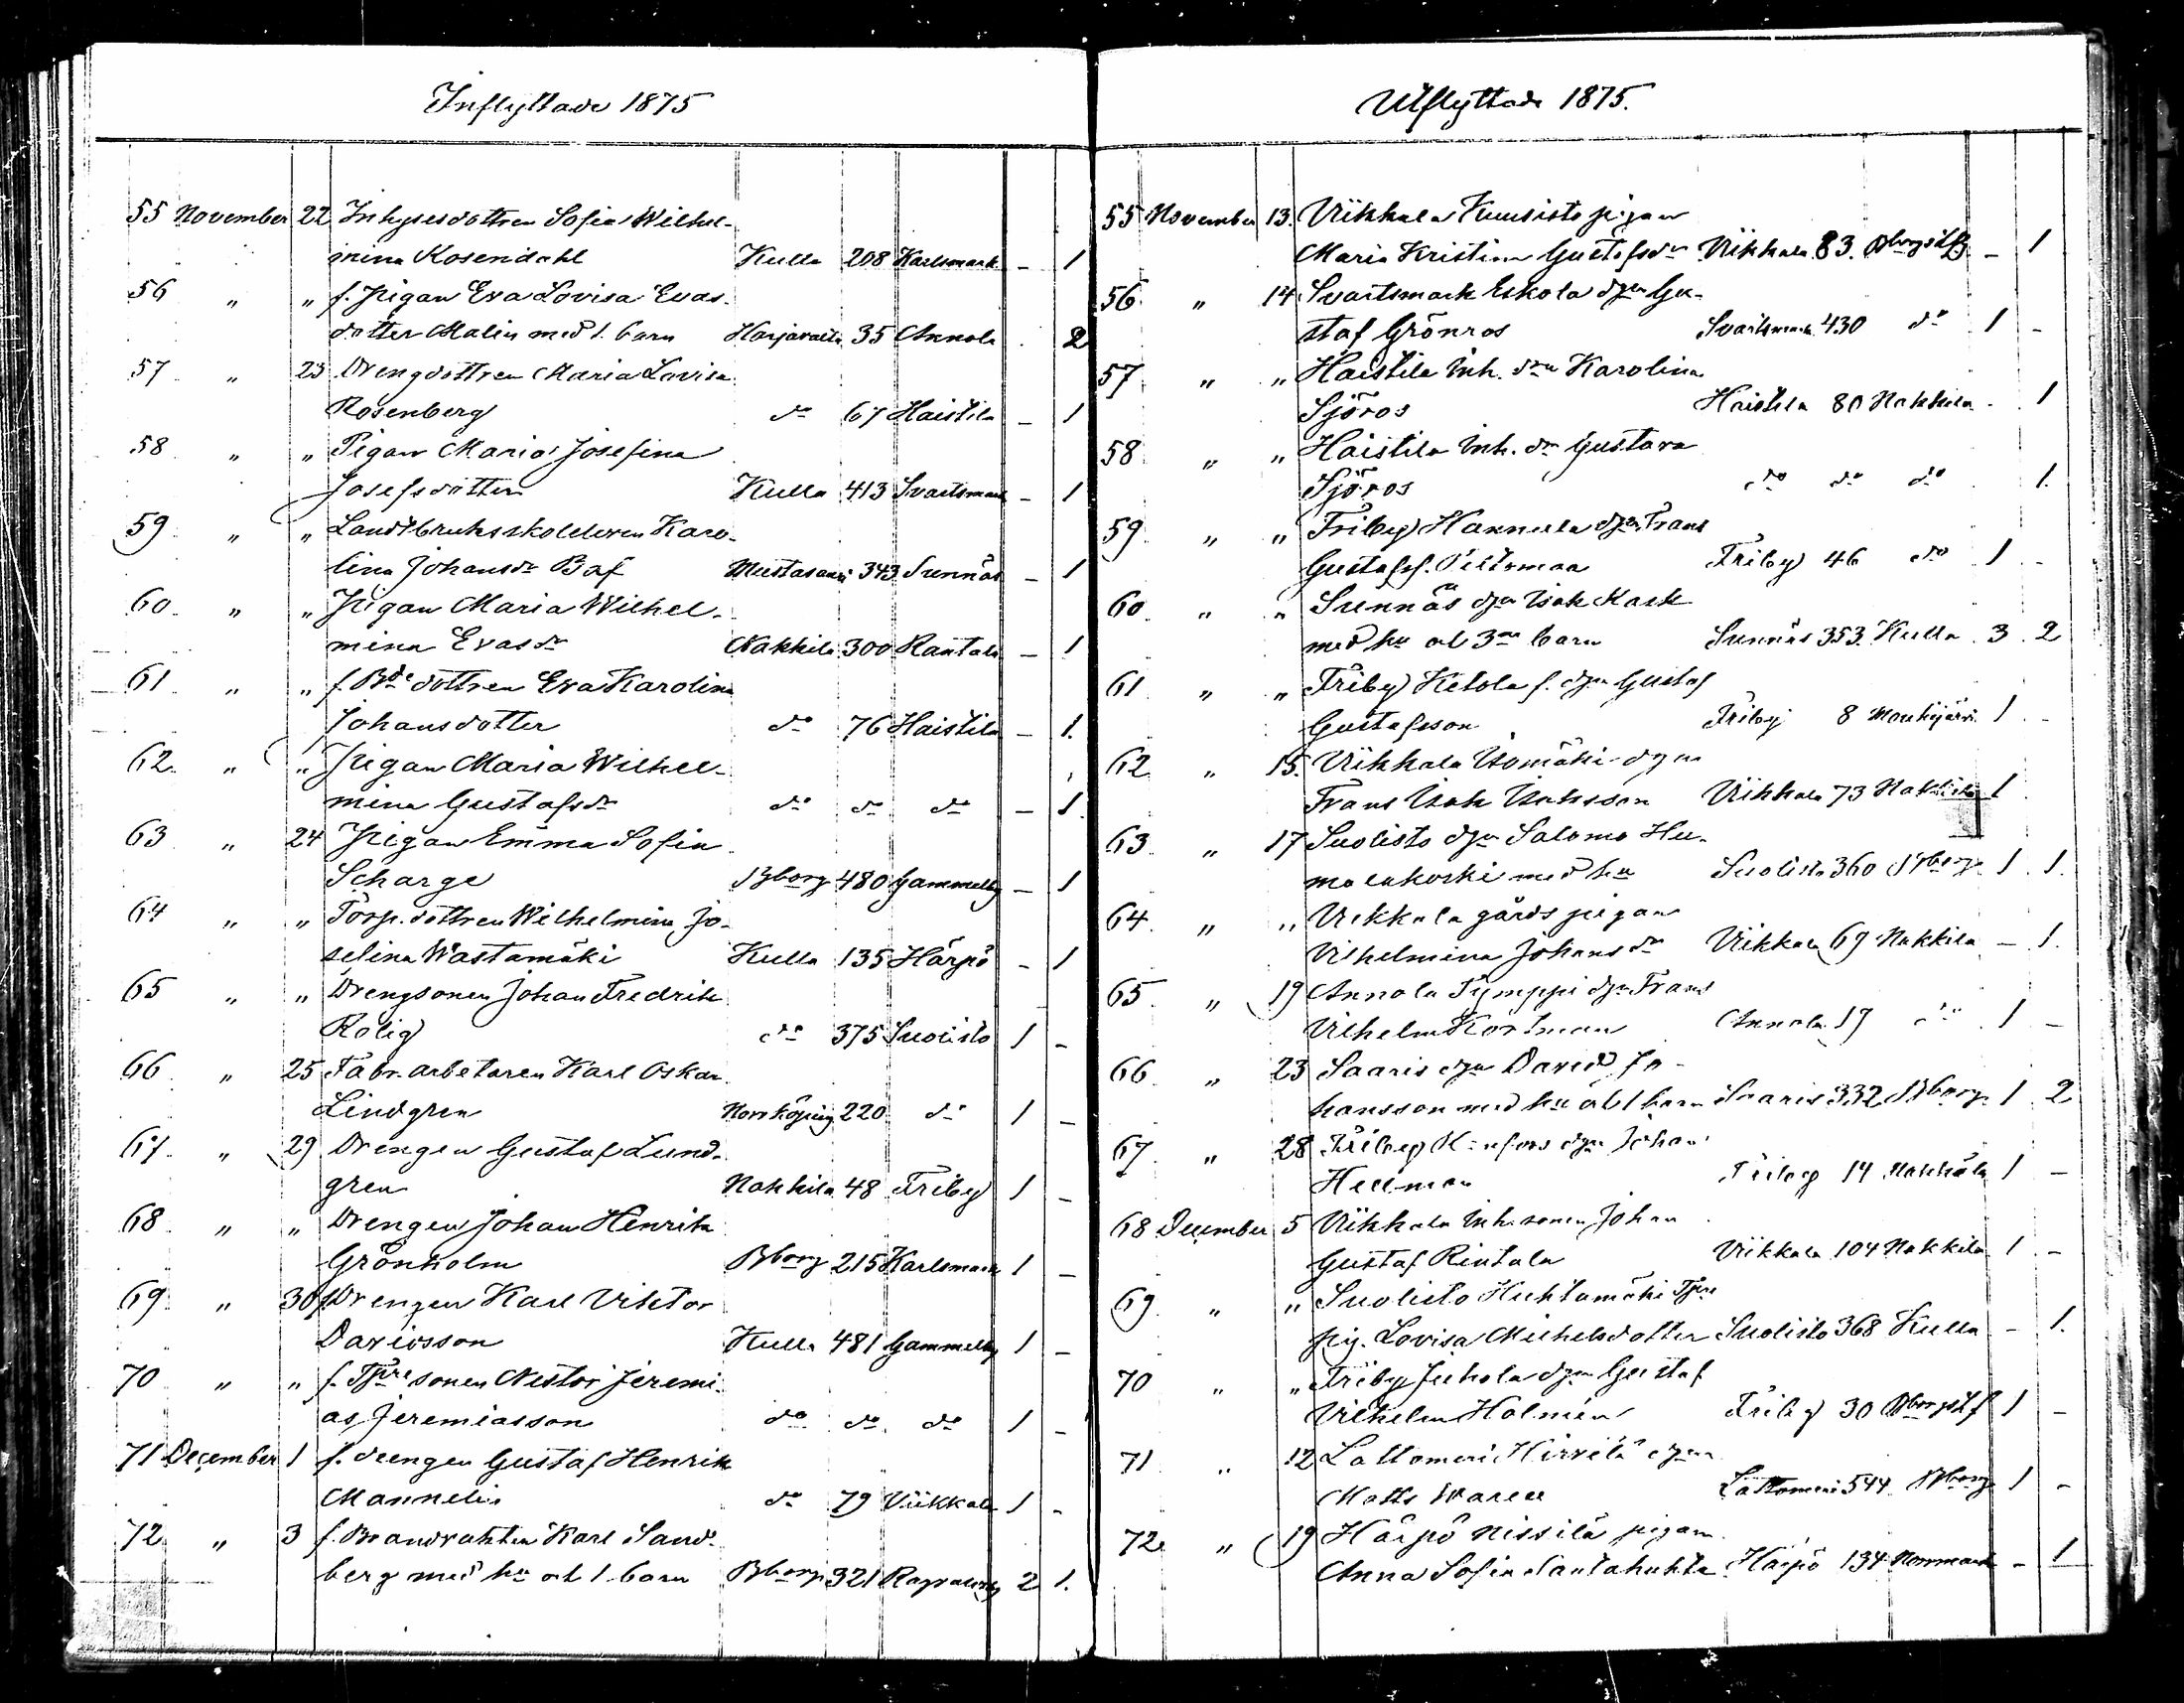 Inflyttade 1875
55 November 22 Inhysesdottren Sofia Wilhel-
mina Rosendahl Kulla 208 Karlsmark - 1
56 " " f. Pigan Eva Lovisa Evas-
dotter Malin med 1. barn Harjavalta 35 Annola 2
57 " 23 Drengdottren Maria Lovisa
Rosenberg do 67 Haistila - 1
58 " " Pigan Maria Josefina
Josefsdotter Kulla 413 Svartsmark - 1
59 " " Landtbruksskoleleven Karo-
lina Johansdr Mustasaari 343 Sunnäs - 1
60 " " Pigan Maria Wilhel-
mina Evasdr Nakkila 300 Rantala - 1
61 " " f. Bde dottren Eva Karolina
Johansdotter do 76 Haistila - 1.
62 " " Pigan Maria Wilhel-
mina Gustafsdr do do do - 1.
63 " 24 Pigan Emma Sofia
Scharge Bborg 480 Gammelby - 1
64 " " Torp. dottren Wilhelmina Jo-
selina Wastamäki Kulla 135 Härpö - 1
65 " " Drengsonen Johan Fredrik
Rolig do 375 Suolisto 1 -
66 " 25 Fabr. arbetaren Karl Oskar
Lindgren Norrköping 220 do 1 -
67 " 29 Drengen Gustaf Lund-
gren Nakkila 48 Friby 1 -
68 " " Drengen Johan Henrik
Grönholm Bborg 215 Karlsmark 1 -
69 " 30 f. Drengen Karl Viktor
Davidsson Kulla 481 Gammelby 1 -
70 " " f. Tjre sonen Nestor Jeremi-
as Jeremiasson do do do 1 -
71 December 1 f. drengen Gustaf Henrik
Mannelin do 79 Viikkala 1 -
72 " 3 f. Brandvakten Karl Sand-
berg med hu och 1 barn Bborg 321 Ragvaldsby 2 1.
Utflyttade 1875.
55 November 13. Viikkala Kuusisto pigan
Maria Kristina Gustafsdr Viikkala 83. - 1
56 " 14 Svartsmark Eskola dgen Gu-
staf Grönroos Svartsmark 430 do 1 -
57 " " Haistila Inh. drn Karolina
Sjöros Haistila 80 Nakkila 1
58 " " Haistila Inh. dr Gustava
Sjöros do do do 1.
59 " " Friby Hannula dgen Frans
Gustafsf. Piltomaa Friby 46 do 1 -
60 " " Sunnäs dgn Isak Mask
med hu och 3ne barn Sunnäs 353. Kulla 3 2
61 " " Friby Ketola f. dgn Gustaf
Gustafsson Friby 8 Mouhijärvi 1 -
62 " 15. Viikkala Isomäki dgn
Frans Isak Isaksson Viikkala 73 Nakkila 1
63 " 17 Suolisto dgn Salomo Hu-
malakoski med hu Suolisto 360 Bborg 1 1.
64 " " Viikkala gårds pigan
Vilhelmina Johansdr Viikkala 69 Nakkila - 1.
65 " 19 Annola Pymppi dgn Frans
Vilhelm Kortman Annola 19 do 1 -
66 " 23 Saaris dgn David Jo-
hansson med hu och 1 barn Saaris 332 Bborg 1 2
67 " 28 Friby dgn Johan
Hellman Friby 14 Nakkila 1 -
68 December 5 Viikkala Inh. sonen Johan
Gustaf Rintala Viikkala 104 Nakkila 1 -
69 " " Suolisto Huhtamäki Tjre
pig. Lovisa Mickelsdotter Suolisto 368 Kulla - 1.
70 " " Friby Juhola dgn Gustaf
Vilhelm Holmén Friby 30 1 -
71 " 12 Lattomeri Hirvelä dgn
Matts Lattomeri 544 Bborg 1 -
72 " 19 Härpö Nissilä pigan
Anna Sofia Santahuhta Härpö 134 Norrmark - 1